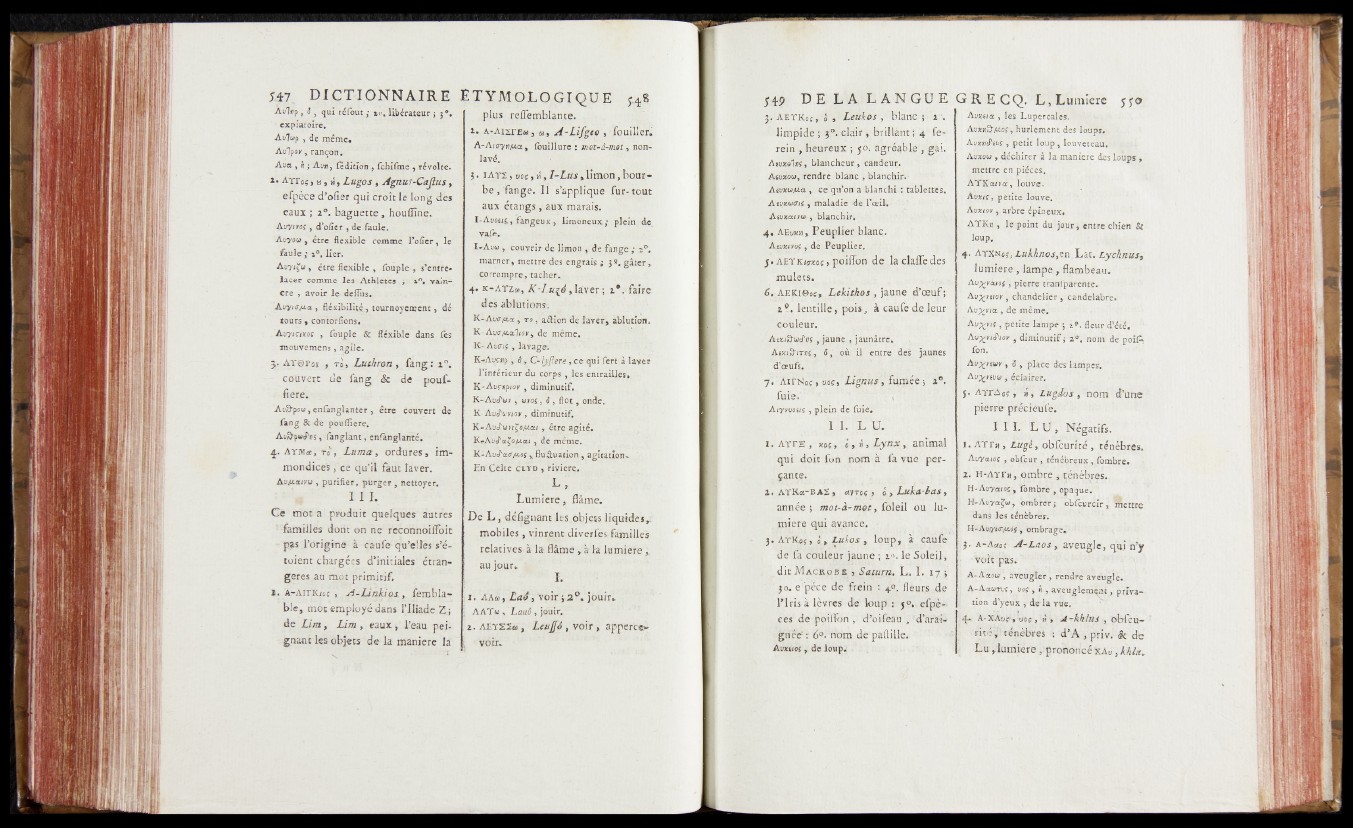 547 DICTIONNAIRE ETYMOLOGIQUE 548
Αυΐηρ, ὁ, qui résout ; 2°. libérateur ; 3°.
expiatoire.
Αυΐωρ, de même.
Αυΐρον, rançon.
Λυα, ἡ ; Λυη, sédition, schisme, révolte.
2. ΛΥΓος, ʜ, ἡ, Lugos, Agnus-Castus,
espèce d'osier qui croit le long des
eaux ; 2°. baguette, houssine.
Λυγινος, d'osier, de saule.
Λυγοω, être flexible comme l'osier, le
saule ; 2°. lier.
Λυγιζω, être flexible, souple, s'entre-
lacer comme les Athletes, 2°. vain-
cre, avoir le dessus.
Λυγισμα, fléxibilité, tournoyement, dé
tours, contorsions.
Λυγιςικος, souple & fléxible dans ses
mouvemens, agile.
3. ΛΥΘΡον, το, Luthron, sang : 2°.
couvert de sang & de pous-
siere.
Λυθροω, ensanglanter, être couvert de
sang & de poussiere.
Λυθρωδης, sanglant, ensanglanté.
4. ΛΥΜα, το, Luma, ordures, im-
mondices, ce qu'il faut laver.
Λυμαινω, purifier, purger, nettoyer.
III.
Ce mot a produit quelques autres
familles dont on ne reconnoissoit
pas l'origine à cause qu'elles s'é-
toient chargées d'initiales étran-
geres au mot primitif.
1. Α-ΛΙΓΚιος, A-Linkios, sembla-
ble, mot employé dans l'Iliade Z ;
de Lim, Lim, eaux, l'eau pei-
gnant les objets de la maniere la
plus ressemblante.
2. Α-ΛΙΣΓΕω, ω, A-Lisgeo, souiller.
Α-Λισγημα, souillure : mot-à-mot, non-
lavé.
3. ΙΛΥΣ, υος, ἡ, I-Lus, limon, bour-
be, fange. Il s'applique sur-tout
aux étangs, aux marais.
Ι-Λυοεις, fangeux, limoneux ; plein de
vase.
Ι-Λυω, couvrir de limon, de fange ; 2°.
marner, mettre des engrais ; 3°. gâter,
corrompre, tacher.
4. Κ-ΛΥΖω, K-Luzó, laver ; 2°. faire
des ablutions.
Κ-Λυσμα, το, action de laver, ablution.
Κ-Λυσμαΐιον, de même.
Κ-Λυσις, lavage.
Κ-Λυςηρ, ὁ, C-lystere, ce qui sert à laver
l'intérieur du corps, les entrailles.
Κ-Λυςηριον, diminutif.
Κ-Λυδων, ωνος, ὁ, flot, onde.
Κ-Λυδωνιον, diminutif.
Κ-Λυδωνιζομαι, être agité.
Κ-Λυδαζομαι, de même.
Κ-Λυδασμος, fluctuation, agitation.
En Celte CLYD, riviere.
L,
Lumiere, flâme.
De L, désignant les objets liquides,
mobiles, vinrent diverses familles
relatives à la flâme, à la lumiere,
au jour.
I.
1. ΛΑω, Laó, voir ; 2°. jouir.
ΛΑΥω, Lauó, jouir.
2. ΛΕΥΣΣω, Leussó, voir, apperce-
voir.
549 DE LA LANGUE GRECQ. L, Lumiere 550
3. ΛΕΥΚος, ὁ, Leukos, blanc ; 2°.
limpide ; 3°. clair, brillant ; 4° se-
rein, heureux ; 5°. agréable, gai.
Λευκοΐης, blancheur, candeur.
Λευκοω, rendre blanc, blanchir.
Λευκωμα, ce qu'on a blanchi : tablettes.
Λευκωσις, maladie de l'œil.
Λευκαινω, blanchir.
4. ΛΕυκη, Peuplier blanc.
Λευκινος, de Peuplier.
5. ΛΕΥΚισκος, poisson de la classe des
mulets.
6. ΛΕΚΙΘος, Lekithos, jaune d'œuf ;
2°. lentille, pois, à cause de leur
couleur.
Λεκιθωδης, jaune, jaunâtre.
Λεκιθιτης, ὁ, où il entre des jaunes
d'œufs.
7. ΛΙΓΝυς, υος, Lignus, fumée ; 2°.
suie.
Λιγνυωις, plein de suie.
II. LU.
1. ΛΥΓΞ, κος, ὁ, ἡ, Lynx, animal
qui doit son nom à sa vue per-
çante.
2. ΛΥΚα-ΒΑΣ, αντος, ὁ, Luka-bas,
année ; mot-à-mot, soleil ou lu-
miere qui avance.
3. ΛΥΚος, ὁ, Lukos, loup, à cause
de sa couleur jaune ; 2°. le Soleil,
dit MACROBE, Saturn. L. I. 17 ;
3°. espéce de frein : 4°. fleurs de
l'Iris à lèvres de loup : 5°. espè-
ces de poisson, d'oiseau, d'arai-
gnée : 6°. nom de pastille.
Λυκειος, de loup.
Λυκεια, les Lupercales.
Λυκηθμος, hurlement des loups.
Λυκιδευς, petit loup, louveteau.
Λυκοω, déchirer à la maniere des loups,
mettre en piéces.
ΛΥΚαινα, louve.
Λυκις, petite louve.
Λυκιον, arbre épineux.
ΛΥΚη, le point du jour, entre chien &
loup.
4. ΛΥΧΝος, Lukhnos, en Lat. Lychnus,
lumiere, lampe, flambeau.
Λυχναιος, pierre transparente.
Λυχνειον, chandelier, candelabre.
Λυχνια, de même.
Λυχνις, petite lampe ; 2°. fleur d'été.
Λυχνιδιον, diminutif ; 2°. nom de pois-
son.
Λυχνεων, ὁ, place des lampes.
Λυχνευω, éclairer.
5. ΛΥΓΔος, ἡ, Lugdos, nom d'une
pierre précieuse.
III. LU, Négatifs.
1. ΛΥΓη, Lugé, obscurité, ténèbres.
Λυγαιος, obscur, ténébreux, sombre.
2. Η-ΛΥΓη, ombre, ténèbres.
Η-Λυγαιος, sombre, opaque.
Η-Λυγαζω, ombrer ; obscurcir, mettre
dans les ténèbres.
Η-Λυγισμος, ombrage.
3. Α-Λαος A-Laos, aveugle, qui n'y
voit pas.
Α-Λαοω, aveugler, rendre aveugle.
Α-Λαωτυς, υος, ἡ, aveuglement, priva-
tion d'yeux, de la vue.
4. Α-ΧΛυς, υος, ἡ, A-khlus, obscu-
rité, ténèbres : d'A, priv. & de
Lu, lumiere, prononcé ΧΛυ, khlu.